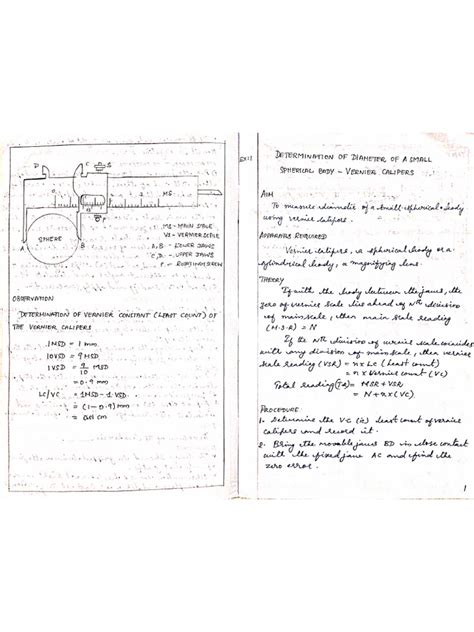 D
C
S
0
1
2
MS
SPHERE
A
B
P
MS - MAIN SCALE
VS - VERNIER SCALE
A, B - LOWER JAWS
C, D - UPPER JAWS
OBSERVATION
DETERMINATION OF VERNIER CONSTANT (LEAST COUNT) OF
THE VERNIER CALIPERS
1MSD = 1 mm
10VSD = 9 MSD
1VSD = 9/10 MSD
= 0.9 mm
LC/VC = 1MSD - 1VSD
= (1-0.9) mm
= 0.01 cm
EX:1
DETERMINATION OF DIAMETER OF A SMALL
SPHERICAL BODY - VERNIER CALIPERS
AIM
To measure diameter of a small spherical body
using vernier calipers.
APPARATUS REQUIRED
Vernier calipers, a spherical body or a
cylindrical body, a magnifying lens.
THEORY
If with the body between the jaws, the
zero of vernier scale lies ahead of Nth division
of main scale, then main scale reading
(M.S.R) = N
If the nth division of vernier scale coincides
with any division of main scale, then vernier
scale reading (VSR) = n x LC (Least count)
= n x Vernier count (VC)
Total reading (TR) = MSR + VSR
= N + n x (VC)
PROCEDURE
1. Determine the VC (ie) least count of vernier
calipers and record it.
2. Bring the movable jaws BD in close contact
with the fixed jaw AC and find the
zero error.
1